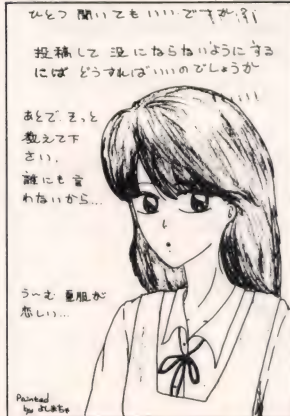 ひとつ 聞いてもいいですか
投稿して 没にならないようにする
には どうすればいいのでしょうか
あとで そっと
教えて下
さい.
誰にも言
わないから…
う〜む 夏服が
恋しい…
Painted
by よしまちゃ